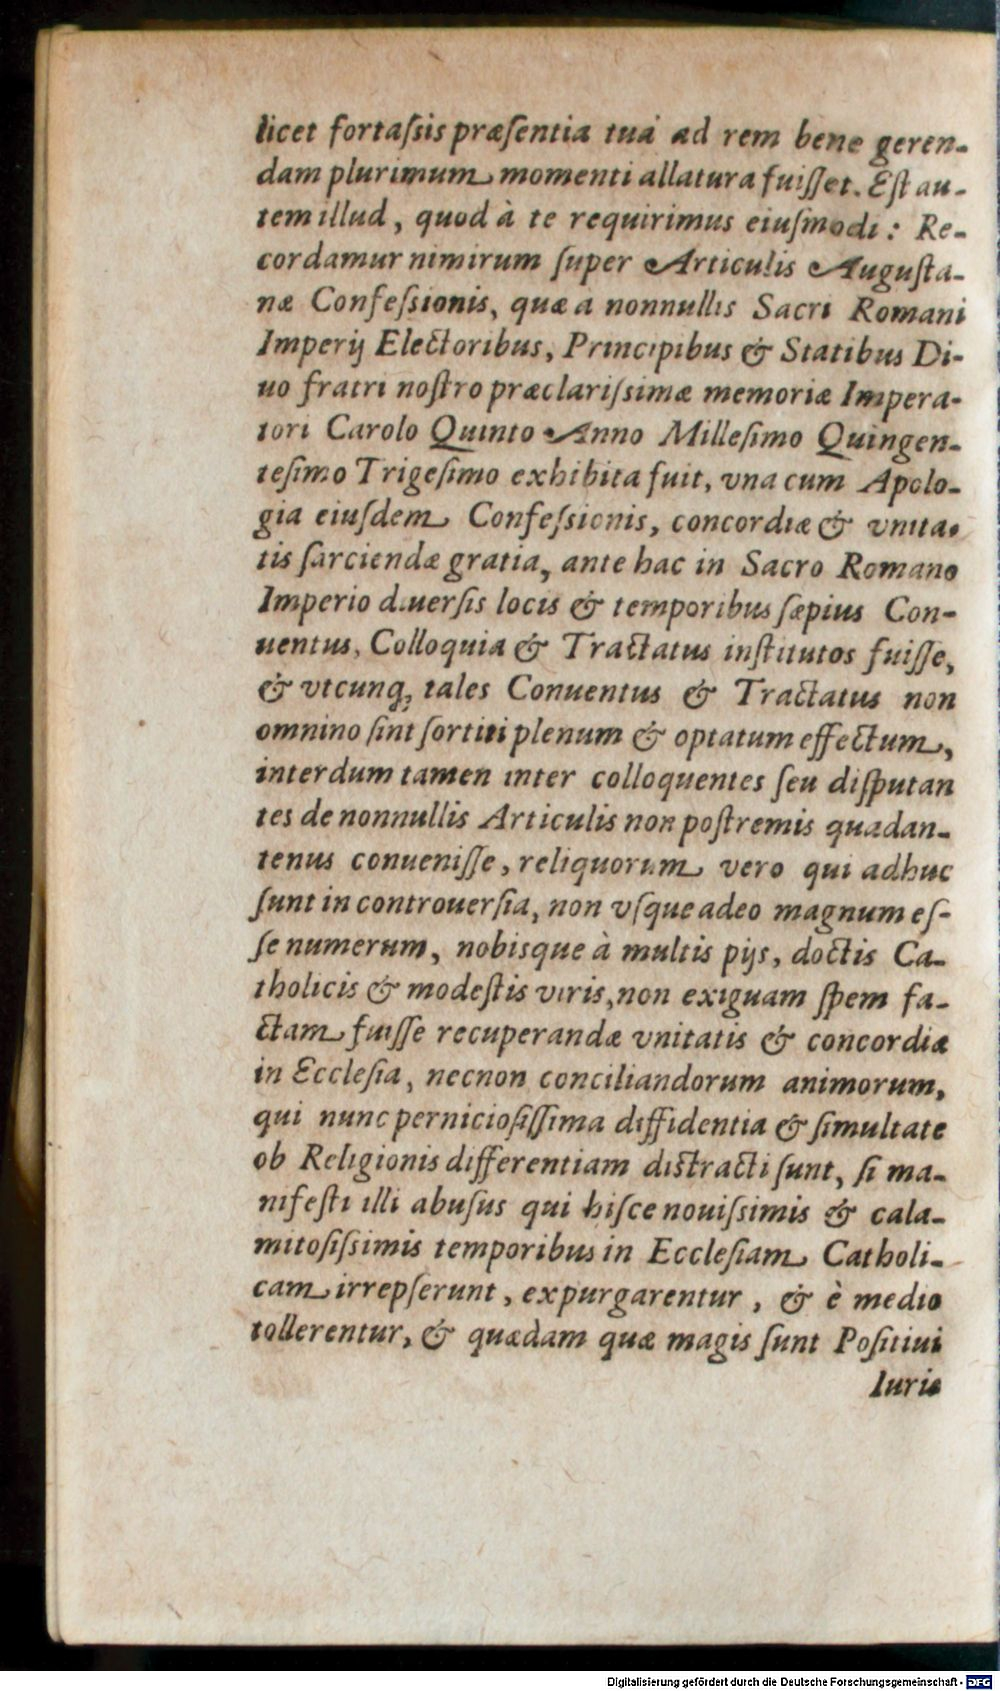 licet fortaſsis præſentia tua ad rem bene geren-
dam plurimum momenti allatura fuiſſet. Eſt au-
tem illud, quod à te requirimus eiuſmodi: Re-
cordamur nimirum ſuper Articulis Auguſta-
næ Confeſsionis, quæ a nonnullis Sacri Romani
Imperij Electoribus, Principibus & Statibus Di-
uo fratri noſtro præclariſsimæ memoriæ Impera-
tori Carolo Quinto Anno Milleſimo Quingen-
teſimo Trigeſimo exhibita fuit, vna cum Apolo-
gia eiuſdem Confeſsionis, concordiæ & vnita-
tis ſarciendæ gratia, ante hac in Sacro Romano
Imperio diuerſis locis & temporibus ſæpius Con-
uentus, Colloquia & Tractatus inſtitutos fuiſſe,
& vtcunq; tales Conuentus & Tractatus non
omnino ſint ſortiti plenum & optatum effectum,
interdum tamen inter colloquentes ſeu diſputan
tes de nonnullis Articulis non poſtremis quadan-
tenus conueniſſe, reliquorum vero qui adhuc
ſunt in controuerſia, non vſque adeo magnum eſ-
ſe numerum, nobisque à multis pijs, doctis Ca-
tholicis & modeſtis viris, non exiguam ſpem fa-
ctam fuiſſe recuperandæ vnitatis & concordiæ
in Eccleſia, necnon conciliandorum animorum,
qui nunc pernicioſiſſima diffidentia & ſimultate
ob Religionis differentiam diſtracti ſunt, ſi ma-
nifeſti illi abuſus qui hiſce nouiſsimis & cala-
mitoſiſsimis temporibus in Eccleſiam Catholi-
cam irrepſerunt, expurgarentur, & è medio
tollerentur, & quædam quæ magis ſunt Poſitiui
Iuris
Digitalisierung gefördert durch die Deutsche Forschungsgemeinschaft - DFG